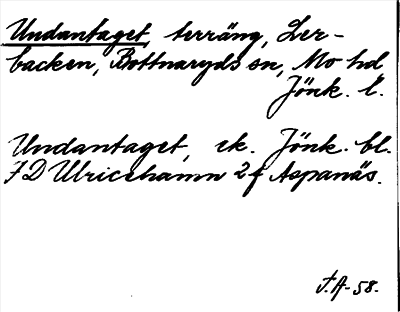 Undantaget, terräng, Ler-
backen, Bottnaryds sn, Mo hd
Jönk. l.
Undantaget, ek. Jönk. bl.
7 D Ulricehamn 2 f Aspanäs.
F.A.-58.